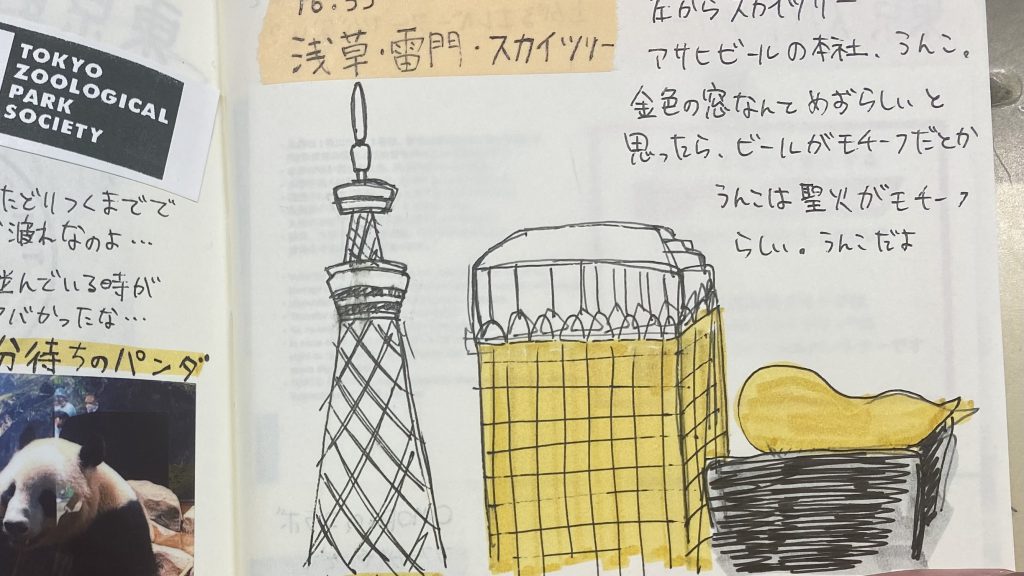 TOKYO
ZOOLOGICAL
PARK
SOCIETY
たどりつくまでで
渡れなのよ…
並んでいる時が
バかったな…
分待ちのパンダ
16:55
浅草・雷門・スカイツリー
左からスカイツリー
アサヒビールの本社、うんこ。
金色の窓なんてめずらしいと
思ったら、ビールがモチーフだとか
うんこは聖火がモチーフ
らしい。うんこだよ